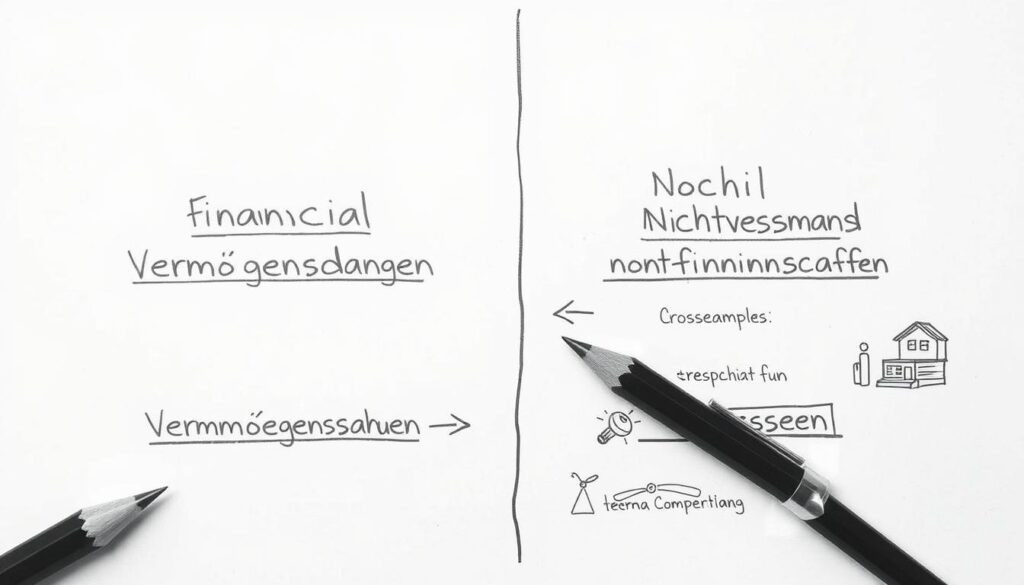 Finainıcial
Vermö gensdangen
Vermmöegenssahuen
Nochil
Nichtvessmand
nont-finninnscaffen
Crosseamples:
erespchiat fun
sseen
teerna Compertlang